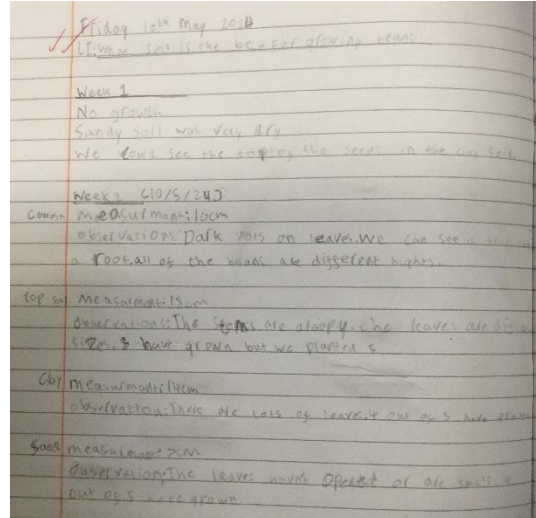 Friday 10th May 2024
LI: What soil is the best for growing beans
Week 1
No growth
Sandy Soil was very dry
We could see the top of the seeds in the clay soil
Week 2 (10/5/24)
measurmant: 10cm
observations: Dark dots on leaves. We can see a
a root. all of the beans are different hights.
top soil measurment: 18cm
observations: The stems are droopy. the leaves are
sizes. 3 have grown but we planted 5
Clay measurment: 14cm
observation: There are lots of leaves. 4 out of 5 have grown
Sand measurment: 7cm
Observation: The leaves havn't opened or are small
out of 5 have grown